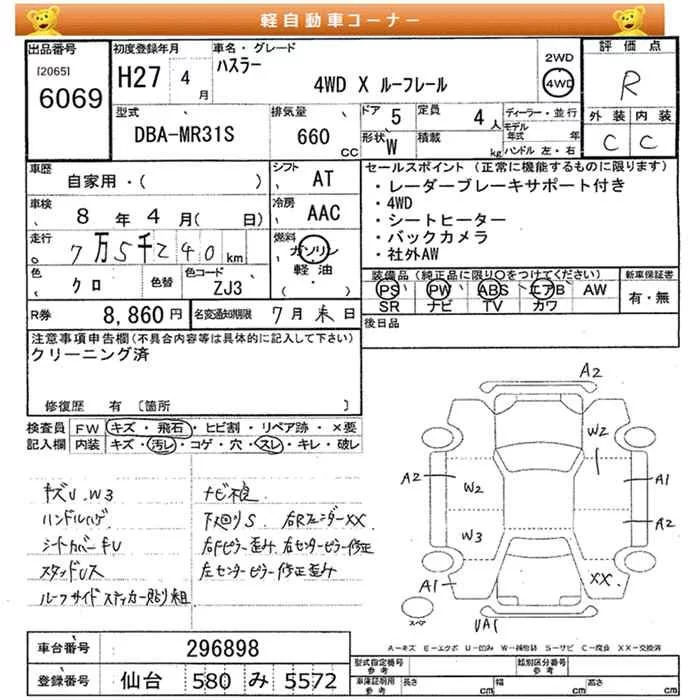 軽自動車コーナー
出品番号
[2065]
6069
初度登録年月
H27 4月
車名・グレード
ハスラー
4WD X ルーフレール
2WD
4WD
評価点
R
外装 内装
C C
型式
DBA-MR31S
排気量
660 CC
ドア 5
定員 4人
形状 W
積載 kg
ディーラー・並行
モデル年式 年
ハンドル 左・右
車歴
自家用・( )
シフト AT
車検
8年4月( 日)
冷房 AAC
走行
7万5千240km
燃料
ガソリン
軽油・
( )
色 クロ
色替
色コード ZJ3
R券 8,860円
名変通知期限 7月末日
セールスポイント(正常に機能するものに限ります)
・レーダーブレーキサポート付き
・4WD
・シートヒーター
・バックカメラ
・社外AW
装備品(純正品に限り○をつけてください)
PS PW ABS エアB AW
SR ナビ TV カワ
新車保証書
有・無
後日品
注意事項申告欄(不具合内容等は具体的に記入して下さい)
クリーニング済
修復歴 有 [箇所 ]
検査員記入欄
FW キズ・飛石・ヒビ割・リペア跡・×要
内装 キズ・汚レ・コゲ・穴・スレ・キレ・破レ
キズU.W3
ハンドルハゲ
シートカバーキU
スタッドレス
ルーフサイドステッカー貼り粗
ナビ不良
下回りS 右Rフェンダーxx
右Fピラー歪み 右センターピラー修正
左センターピラー修正歪み
A2
W2
A2
W2
A1
A2
W3
A1
XX
スペア
UA1
A=キズ E=エクボ U=凹み W=補修跡 S=サビ C=腐食 XX=交換済
車台番号 296898
登録番号 仙台 580 み 5572
型式指定番号 参考
類別区分番号 参考
車庫証明用 参考
長さ cm
幅 cm
高さ cm